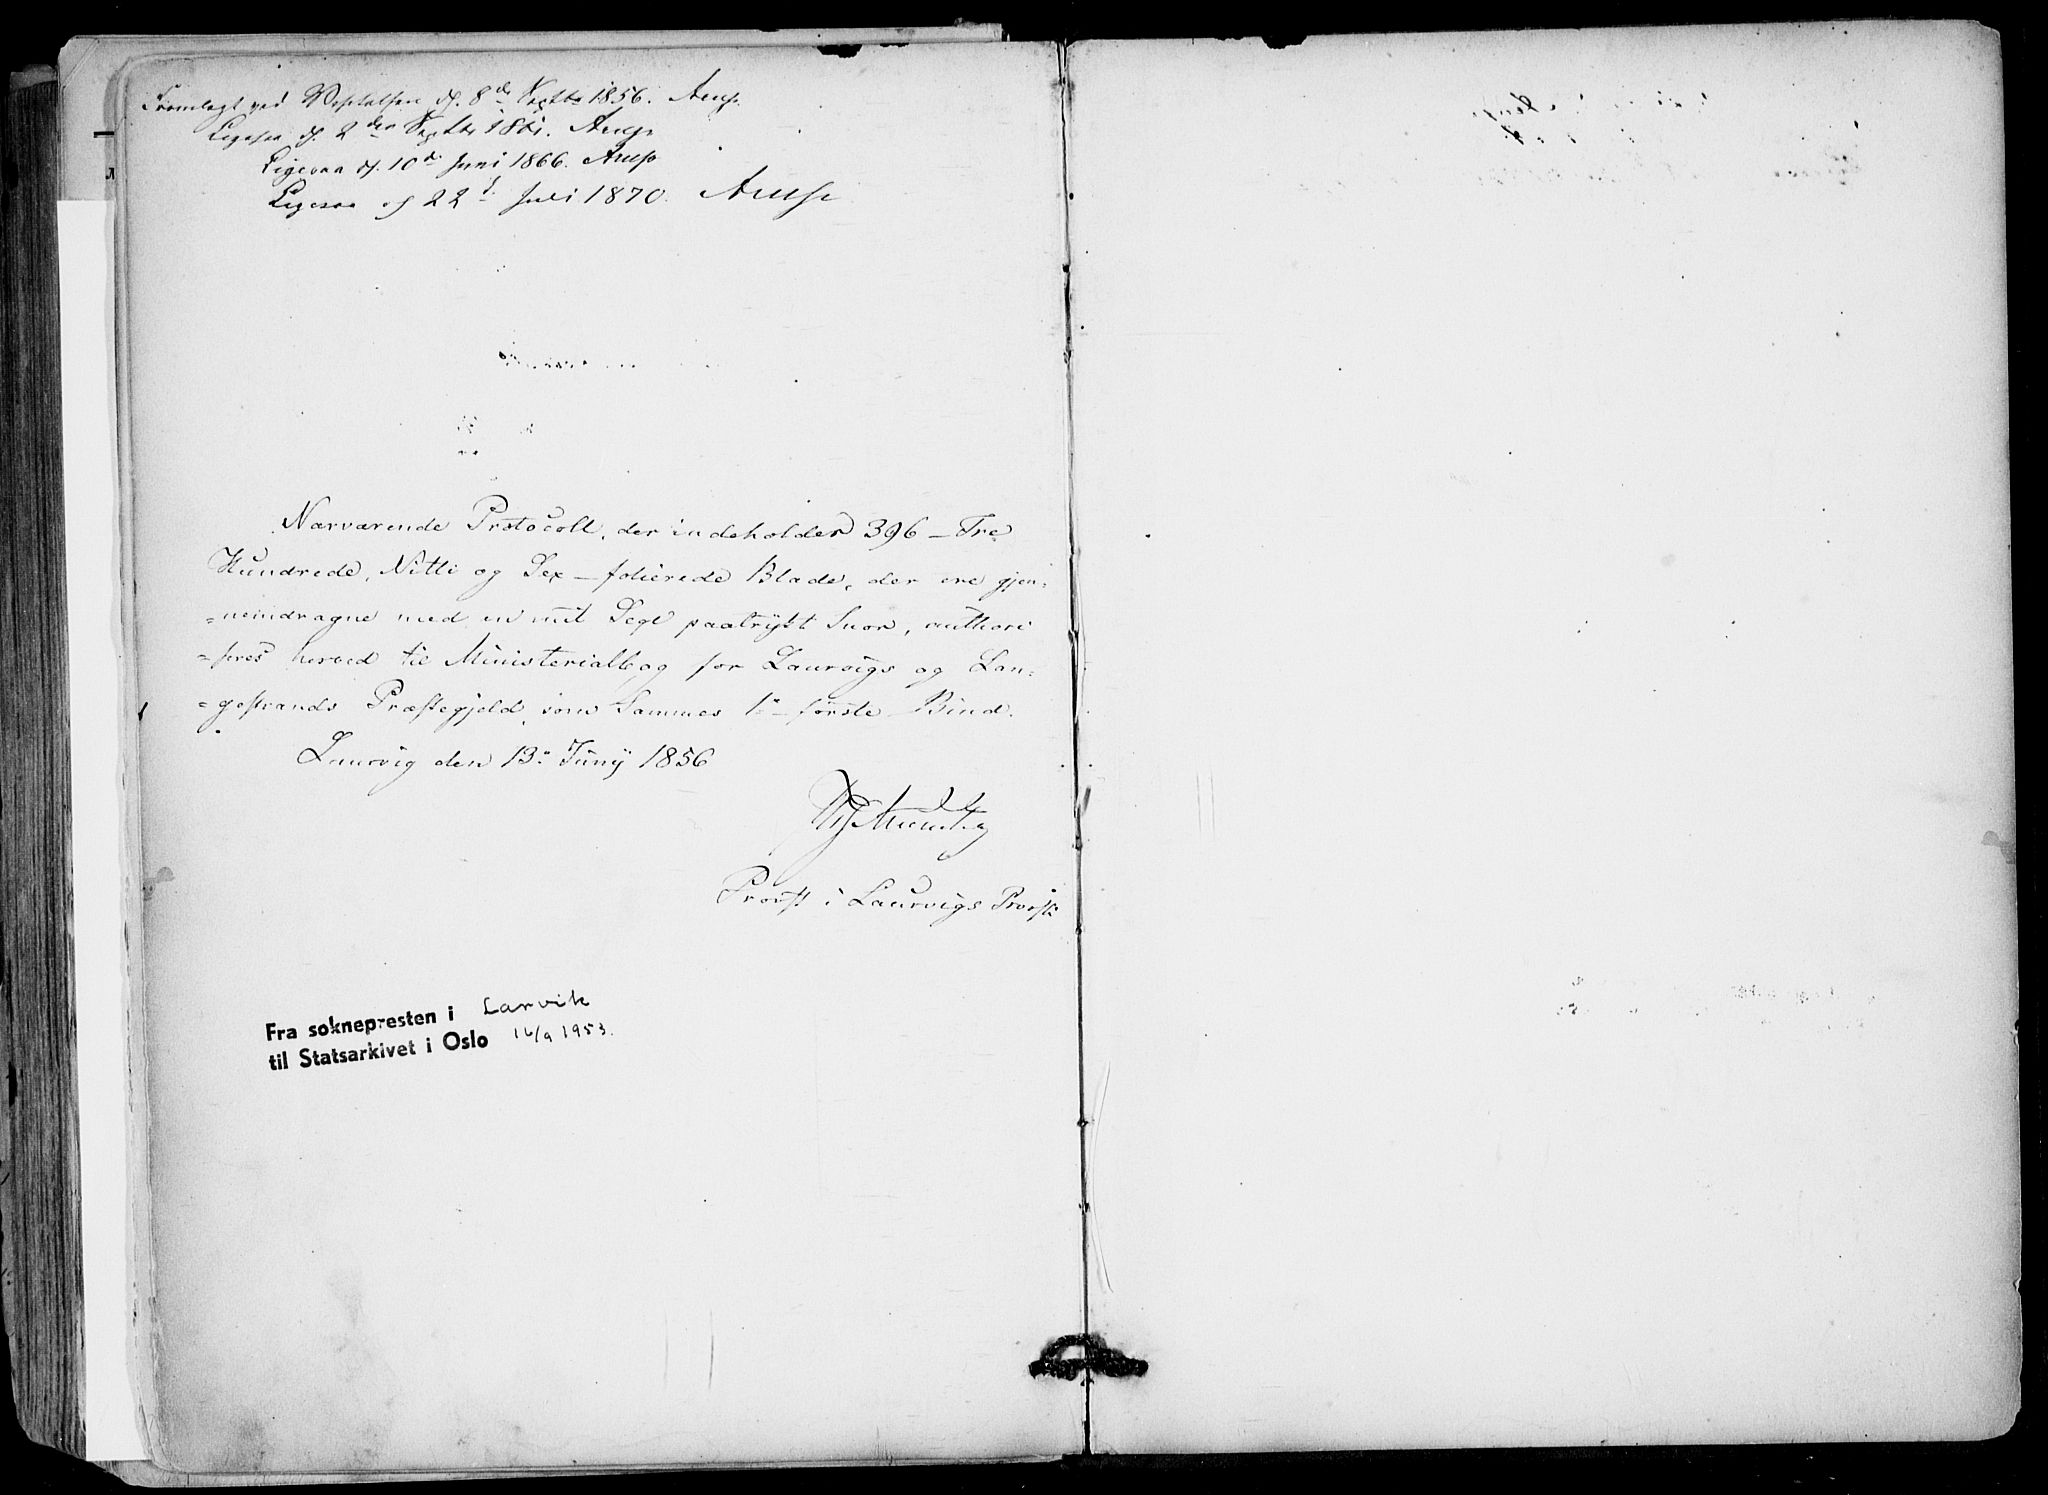 Fremlagt ved Visitatsen d. 8de Septbr 1856. Arup
Ligesaa d. 2den Septbr 1861. Arup
Ligesaa d. 10de Juni 1866. Arup
Ligesaa d 22d Juli 1870. Arup
Nærværende Protocoll, der indeholder 396 – Tre
Hundrede, Nitti og Sex – folierede Blade, der ere gjen-
=nemdragne med en mit Segl paatrykt Snor, authori
=seres herved til Ministerialbog for Laurvigs og Lan-
=gestrands Præstegjeld, som Sammes 1ste – første Bind.
Laurvig den 13de Juny 1856
Provst i Laurvigs Provsti
Fra soknepresten i Larvik
til Statsarkivet i Oslo 16/9 1953.